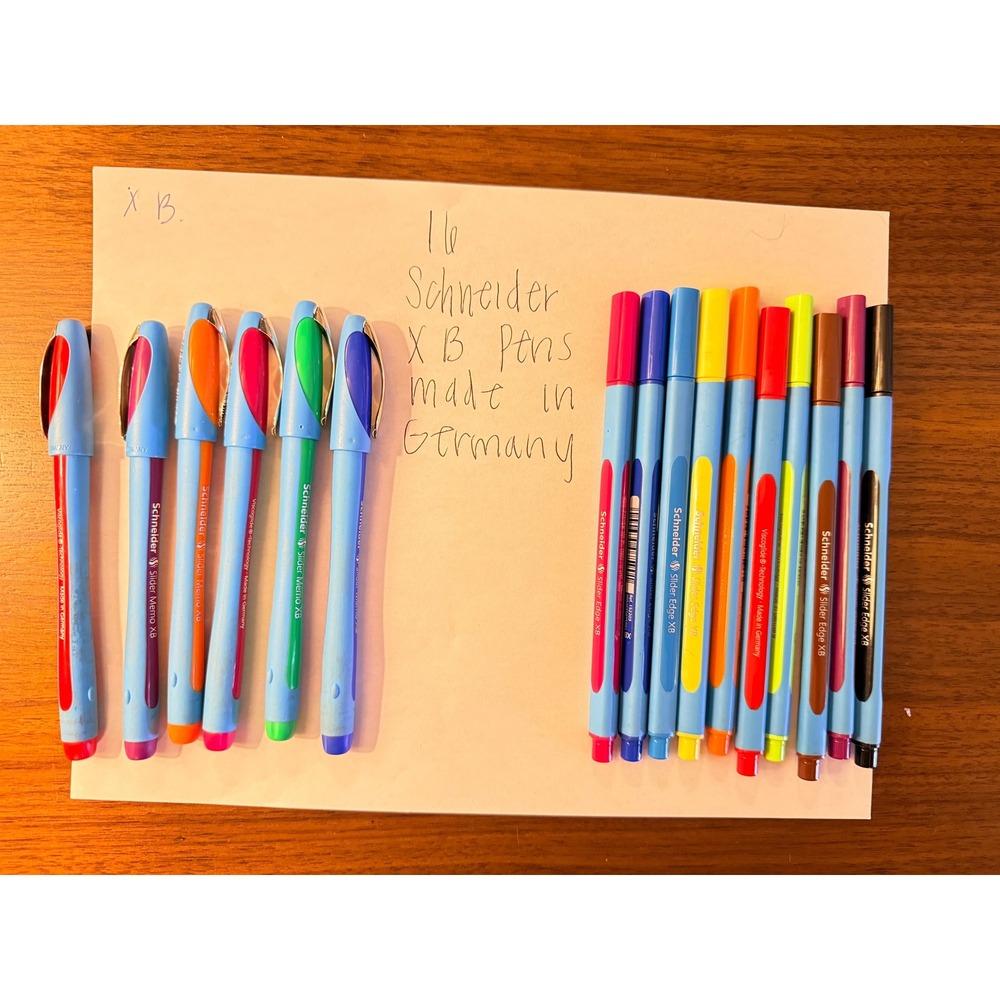 X B.
16
Schneider
X B Pens
made in
Germany
Viscoglide® Technology · Made in Germany
Schneider Slider Memo XB
Schneider Slider Memo XB
Viscoglide® Technology · Made in Germany
Schneider Slider Memo XB
Schneider Slider Edge XB
Schneider Slider Edge XB
Schneider Slider Edge XB
Viscoglide® Technology · Made in Germany
Schneider Slider Edge XB
Schneider Slider Edge XB